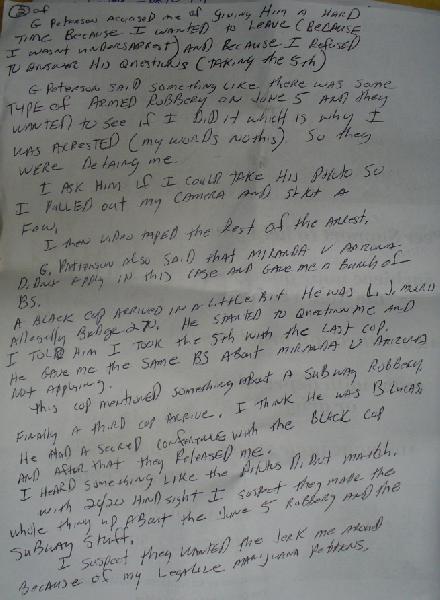 (3) of
G PETERSON ACCUSED me of GIVING HIM A HARD
TIME BECAUSE I WANTED TO LEAVE (BECAUSE
I WASNT UNDERSARREST) AND BECAUSE I REFUSED
TO ANSWER HIS QUESTIONS (TAKING THE 5th)
G PETERSON SAID SOMETHING LIKE THERE WAS SOME
TYPE OF ARMED ROBBERY ON JUNE 5 AND THEY
WANTED TO SEE IF I DID IT WHICH IS WHY I
WAS ARRESTED (MY WORDS NOT HIS). SO THEY
WERE DETAINING ME
I ASK HIM IF I COULD TAKE HIS PHOTO SO
I PULLED OUT MY CAMERA AND
FEW,
I THEN VIDEO TAPED THE REST OF THE ARREST.
G. PETERSON ALSO SAID THAT MIRANDA V ARIZONA
APPLY IN THIS CASE AND GAVE ME A BUNCH OF
BS.
A BLACK COP ARRIVED IN A LITTLE BIT HE WAS L. J.
ALLEGEDLY BADGE HE STARTED TO QUESTION ME AND
I TOLD HIM I TOOK THE 5TH WITH THE LAST COP.
HE GAVE ME THE SAME BS ABOUT MIRANDA V ARIZONA
NOT APPLYING.
THIS COP MENTIONED SOMETHING ABOUT A SUBWAY ROBBERY.
FINALLY A THIRD COP ARRIVE. I THINK HE WAS B LUCAS
HE HAD A SECRED CONFERENCE WITH THE BLACK COP
AND AFTER THAT THEY RELEASED ME.
I HEARD SOMETHING LIKE THE MATCH.
WITH 20/20 HINDSIGHT I SUSPECT THEY MADE THE
WHOLE THING UP ABOUT THE JUNE 5 ROBBERY AND THE
SUBWAY STUFF.
I SUSPECT THEY WANTED TO JERK ME AROUND
BECAUSE OF MY LEGALIZE MARIJUANA